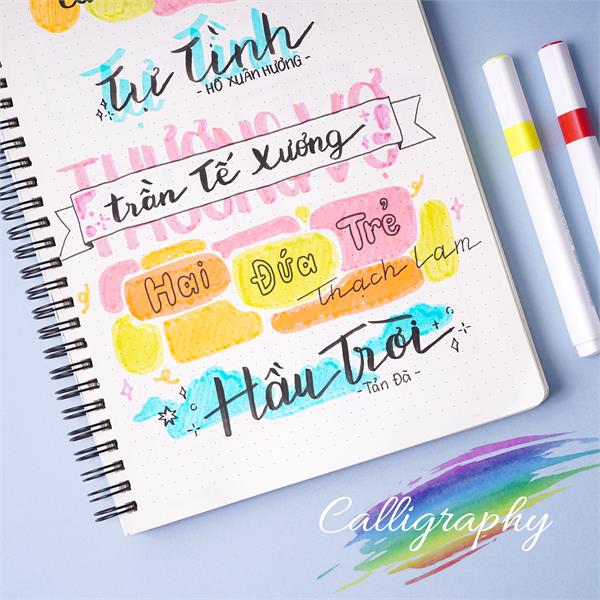 Tự Tình
- HỒ XUÂN HƯƠNG -
THƯƠNG VỢ
Trần Tế Xương
Hai Đứa Trẻ
Thạch Lam
Hầu Trời
- Tản Đà -
Calligraphy